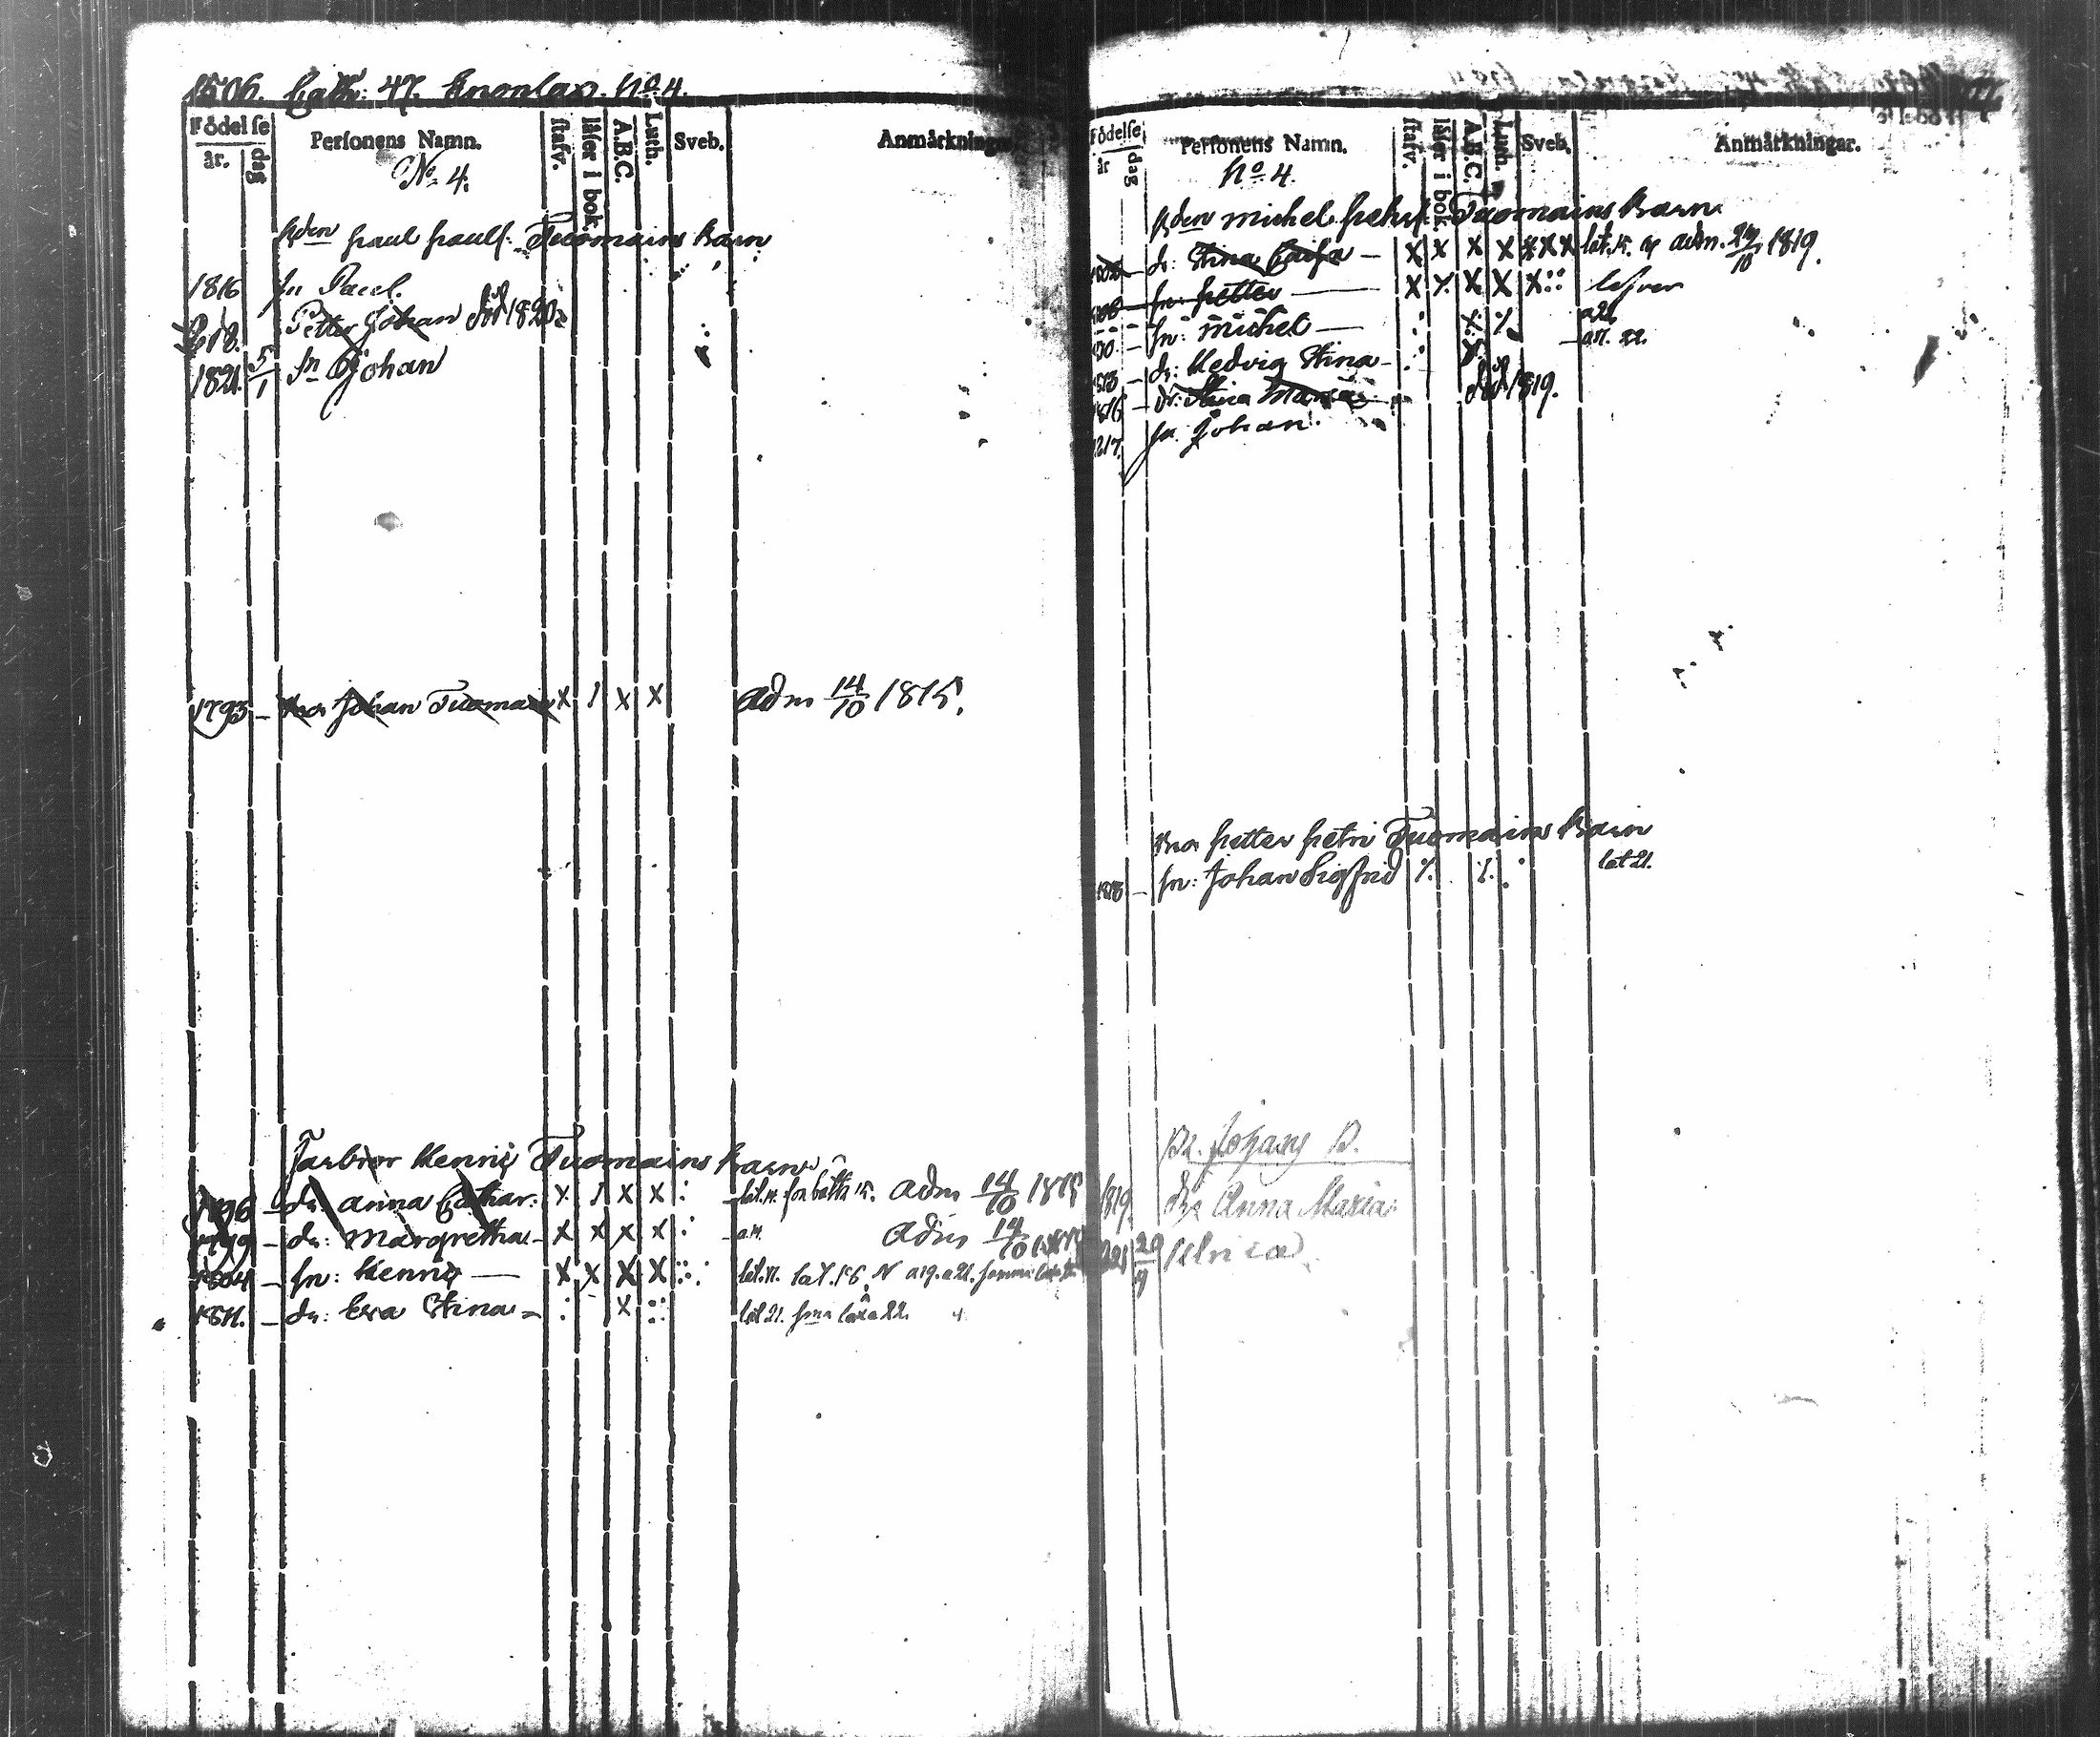 1506. Cath: 47. Knonlax. No 4.
Födelse
år. dag Personens Namn. stafv. läser i bok. A.B.C. Luth. Sveb. Anmärkningar
No 4.
Bden paul paulss: Tuomains Barn
1816 sn Paul.
1818. Petter Johan död 1820
1821. 5/1 sn Johan
1793 - Bror Johan Tuomain x / x x adm 14/10 1815.
Farbror Henric Tuomains Barn
1796 - dr: anna Cathar: x / x x adm 14/10 1815
1799 - dr: Margretha - x x x x adm 14/10 1815
1804 - sn: Henric - x x x x
1811. - dr: Eva Stina - x lät 21.
Födelse
år dag Personens Namn. stafv. läser i bok. A.B.C. Luth. Sveb. Anmärkningar.
No 4.
Bden michel petri Tuomains Barn
dr: Stina Caisa - x x x x x x x adm. 24/10 1819.
sn: petter - x x x x
sn: michel -
dr: Hedvig Stina -
1816 - dr: Stina Maria död 1819.
1817. sn. Johan.
Bror petter petri Tuomains Barn
1813 - sn: Johan Sigfrid lät 21.
Br. Johans B.
1819. dr Anna Maria
1821 20/9 Ulrica